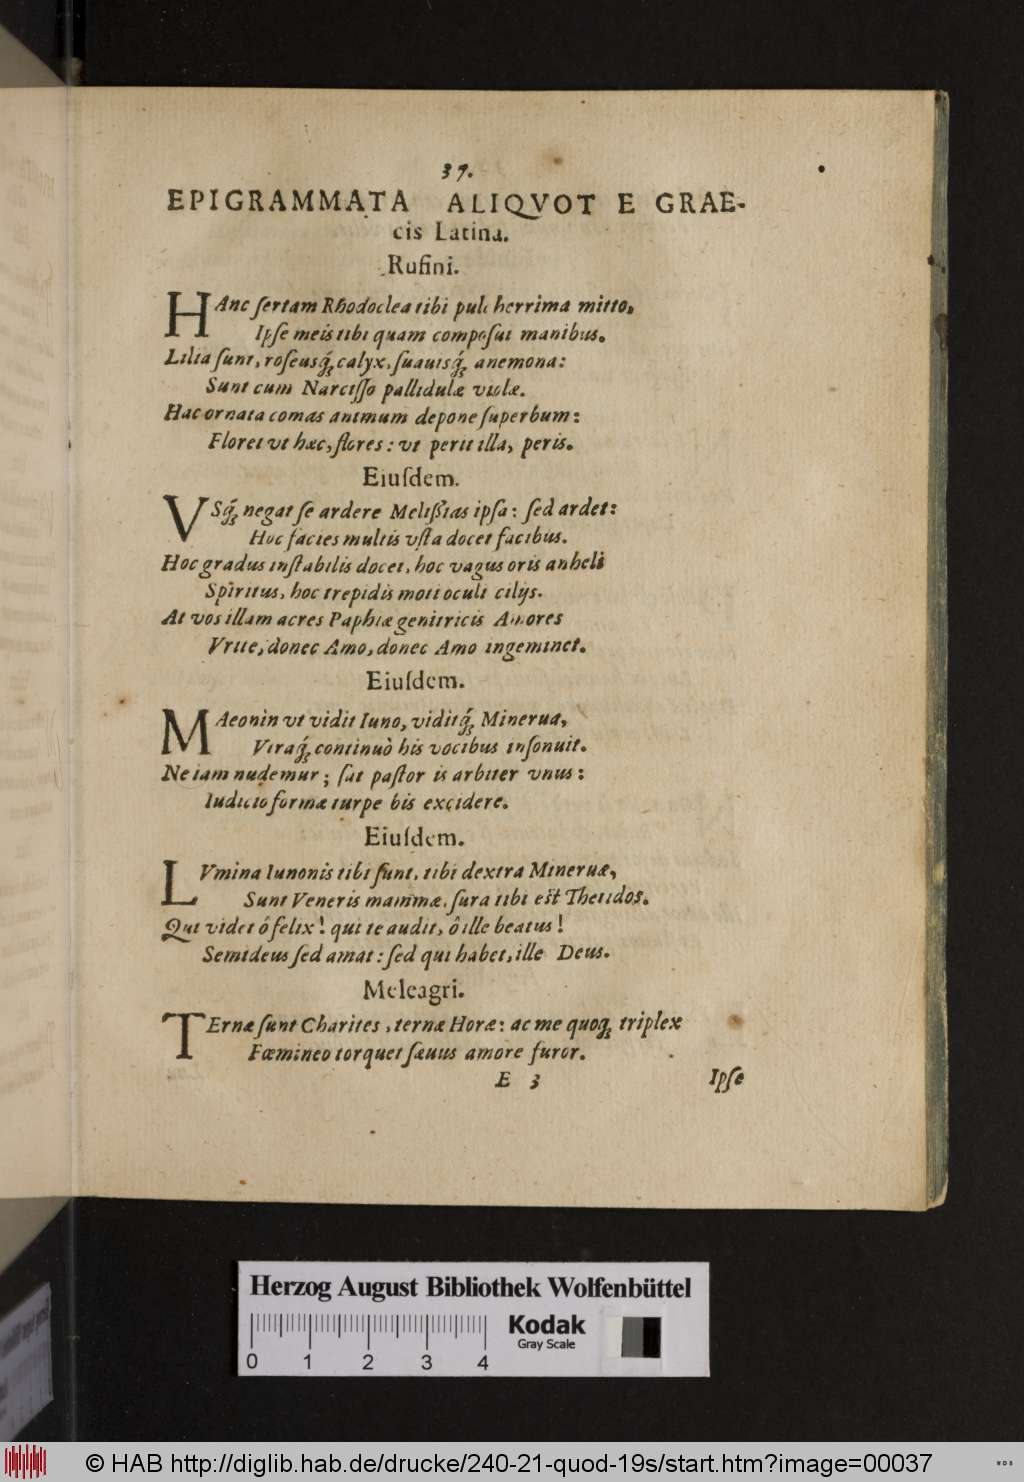 37.
EPIGRAMMATA ALIQVOT E GRAE-
cis Latina.
Rufini.
HAnc ſertam Rhodoclea tibi pulcherrima mitto,
Ipſe meis tibi quam compoſui manibus.
Lilia ſunt, roſeusq́; calyx, ſuauisq́; anemona:
Sunt cum Narciſſo pallidulæ violæ.
Hac ornata comas animum depone ſuperbum:
Floret vt hæc, flores: vt perit illa, peris.
Eiuſdem.
VSq́; negat ſe ardere Melißias ipſa: ſed ardet:
Hoc facies multis vſta docet facibus.
Hoc gradus inſtabilis docet, hoc vagus oris anheli
Spiritus, hoc trepidis moti oculi cilijs.
At vos illam acres Paphiæ genitricis Amores
Vrite, donec Amo, donec Amo ingeminet.
Eiuſdem.
MAeonin vt vidit Iuno, viditq́; Minerua,
Vtraq́; continuò his vocibus inſonuit.
Ne iam nudemur; ſat paſtor is arbiter vnus:
Iudicio formæ turpe bis excidere.
Eiuſdem.
LVmina Iunonis tibi ſunt, tibi dextra Mineruæ,
Sunt Veneris mammæ, ſura tibi eſt Thetidos.
Qui videt ó felix! qui te audit, ô ille beatus!
Semideus ſed amat: ſed qui habet, ille Deus.
Meleagri.
TErnæ ſunt Charites, ternæ Horæ: ac me quoq; triplex
Fœmineo torquet ſæuus amore furor.
E 3
Ipſe
Herzog August Bibliothek Wolfenbüttel
0 1 2 3 4
Kodak
Gray Scale
© HAB http://diglib.hab.de/drucke/240-21-quod-19s/start.htm?image=00037